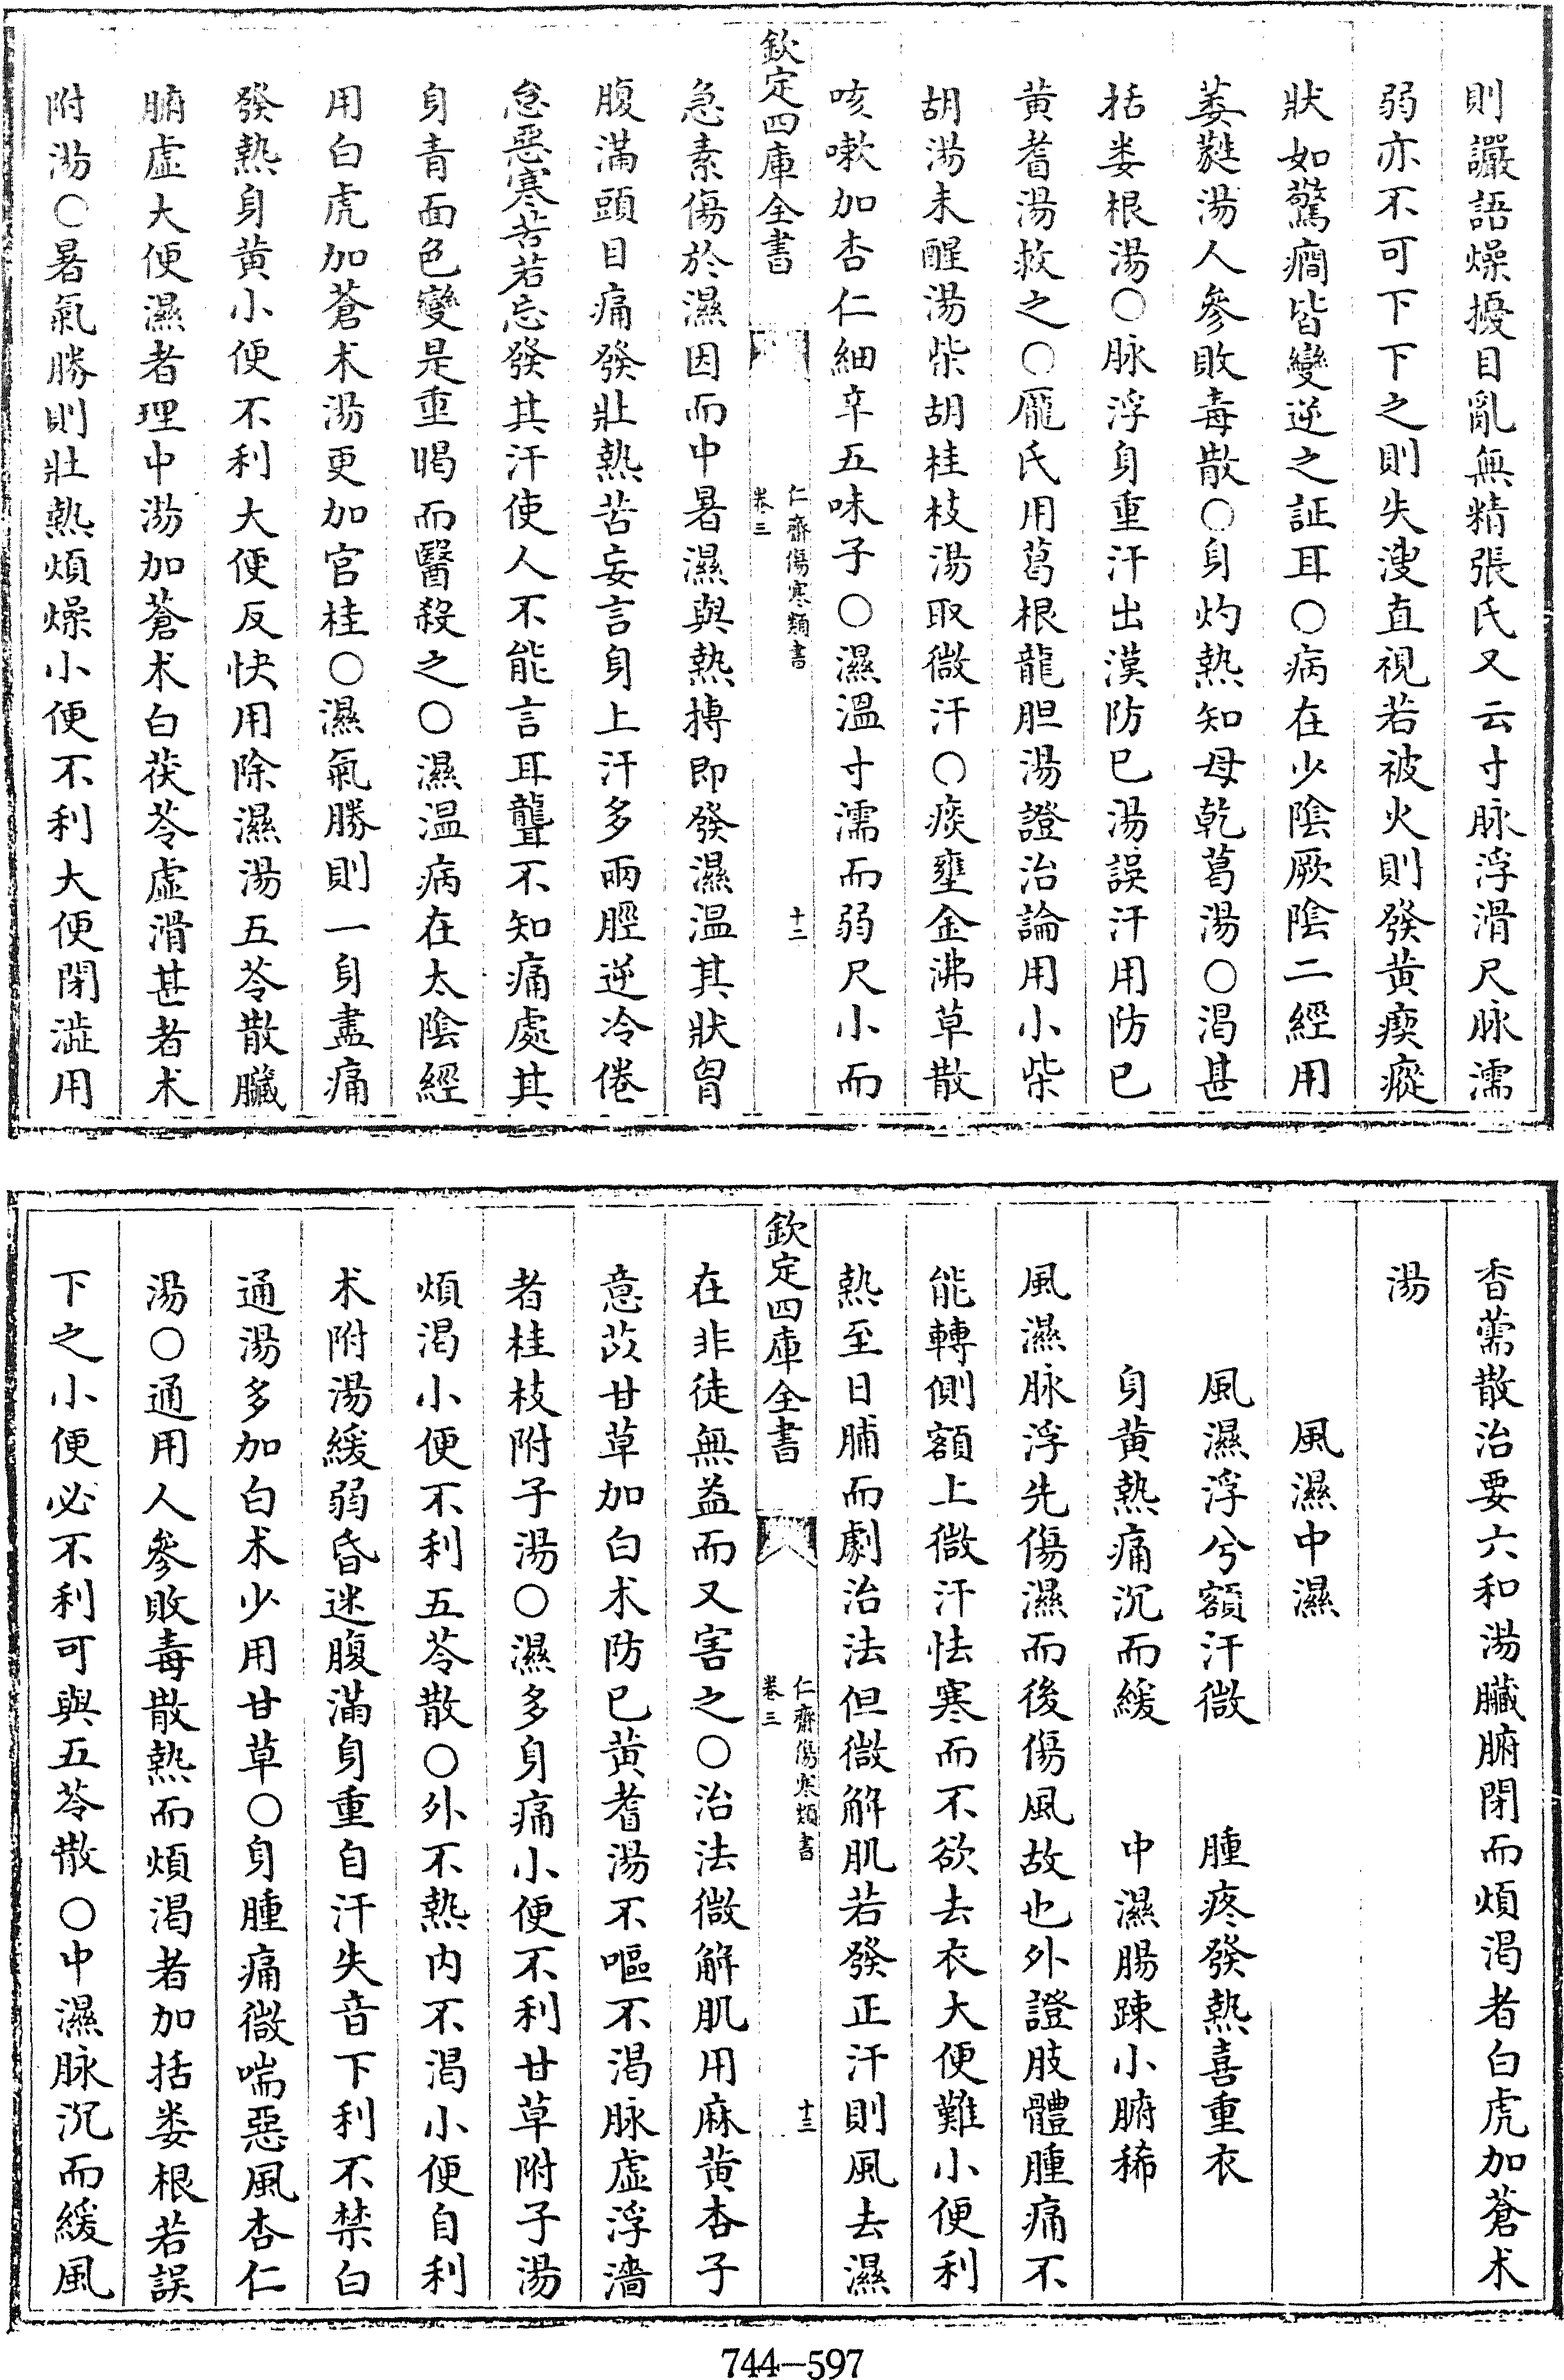 則讝語燥擾目亂無精張氏又云寸脉浮滑尺脉濡
弱亦不可下下之則失溲直視若被火則發黄瘈瘲
狀如驚癇皆變逆之証耳○病在少陰厥陰二經用
萎蕤湯人參敗毒散○身灼熱知母乾葛湯○渴甚
括蔞根湯○脉浮身重汗出漢防已湯誤汗用防已
黄耆湯救之○龐氏用葛根龍胆湯證治論用小柴
胡湯未醒湯柴胡桂枝湯取微汗○痰壅金沸草散
咳嗽加杏仁細辛五味子○濕溫寸濡而弱尺小而
欽定四庫全書
仁齋傷寒類書
卷三
十二
急素傷於濕因而中暑濕與熱搏即發濕温其狀胷
腹滿頭目痛發壯熱苦妄言身上汗多兩脛逆冷倦
怠惡寒苦若忘發其汗使人不能言耳聾不知痛處其
身青面色變是重暍而醫殺之○濕温病在太陰經
用白虎加蒼术湯更加官桂○濕氣勝則一身盡痛
發熱身黄小便不利大便反快用除濕湯五苓散臟
腑虛大便濕者理中湯加蒼术白茯苓虛滑甚者术
附湯○暑氣勝則壯熱煩燥小便不利大便閉澁用
香薷散治要六和湯臟腑閉而煩渴者白虎加蒼术
湯
風濕中濕
風濕浮兮額汗微　腫疼發熱喜重衣
身黄熱痛沉而緩　中濕腸踈小腑稀
風濕脉浮先傷濕而後傷風故也外證肢體腫痛不
能轉側額上微汗怯寒而不欲去衣大便難小便利
熱至日晡而劇治法但微解肌若發正汗則風去濕
欽定四庫全書
仁齋傷寒類書
卷三
十三
在非徒無益而又害之○治法微解肌用麻黄杏子
意苡甘草加白术防已黄耆湯不嘔不渴脉虛浮濇
者桂枝附子湯○濕多身痛小便不利甘草附子湯
煩渴小便不利五苓散○外不熱内不渴小便自利
术附湯緩弱昏迷腹滿身重自汗失音下利不禁白
通湯多加白术少用甘草○身腫痛微喘惡風杏仁
湯○通用人參敗毒散熱而煩渴者加括蔞根若誤
下之小便必不利可與五苓散○中濕脉沉而緩風
744—597